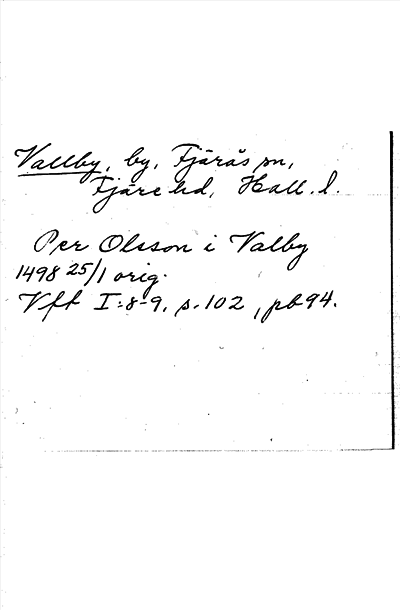 Vallby, by, Fjärås sn,
Fjäre hd, Hall. l.
Per Olsson i Valby
1498 25/1 orig.
Vft I:8-9, s. 102, pb 94.